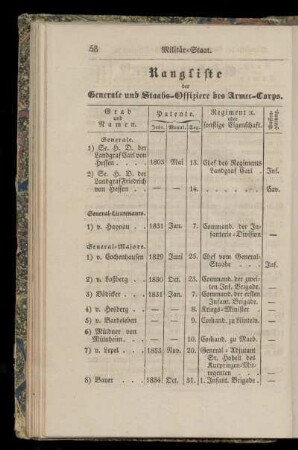 58 Militär=Staat.
Rangliste
der
Generale und Staabs=Offiziere des Armee=Corps.
Grad und Namen. Patente. Regiment u. sonstige Eigenschaft.
Jahr. Monat. Tag.
Generale.
1) Se. H. D. der
Landgraf Carl von
Hessen . . . 1805 Mai 15. Chef des Regiments
Landgraf Carl . Inf.
2) Se. H. D. der
Landgraf Friedrich
von Hessen . . — — 14. — Cav.
General-Lieutenants.
1) v. Haynau . . 1831 Jan. 7. Command. der In-
fanterie-Division —
General-Majore.
1) v. Cochenhausen 1829 Juni 25. Chef vom General-
Staabe . . Inf.
2) v. Loßberg . . 1830 Oct. 23. Command. der zwei-
ten Inf. Brigade. —
3) Bödicker . . 1831 Jan. 7. Command. der ersten
Infant. Brigade. —
4) v. Hesberg . . — — 8. Kriegs-Minister . —
5) v. Bardeleben — — 9. Command. zu Rinteln. —
6) Müldner von
Mülnheim . . — — 10. Command. zu Marb. —
7) v. Lepel . . 1833 Nov. 20. General-Adjutant
Sr. Hoheit des
Kurprinzen-Mit-
regenten —
8) Bauer . . . 1834 Oct. 31. 1. Infant. Brigade. —